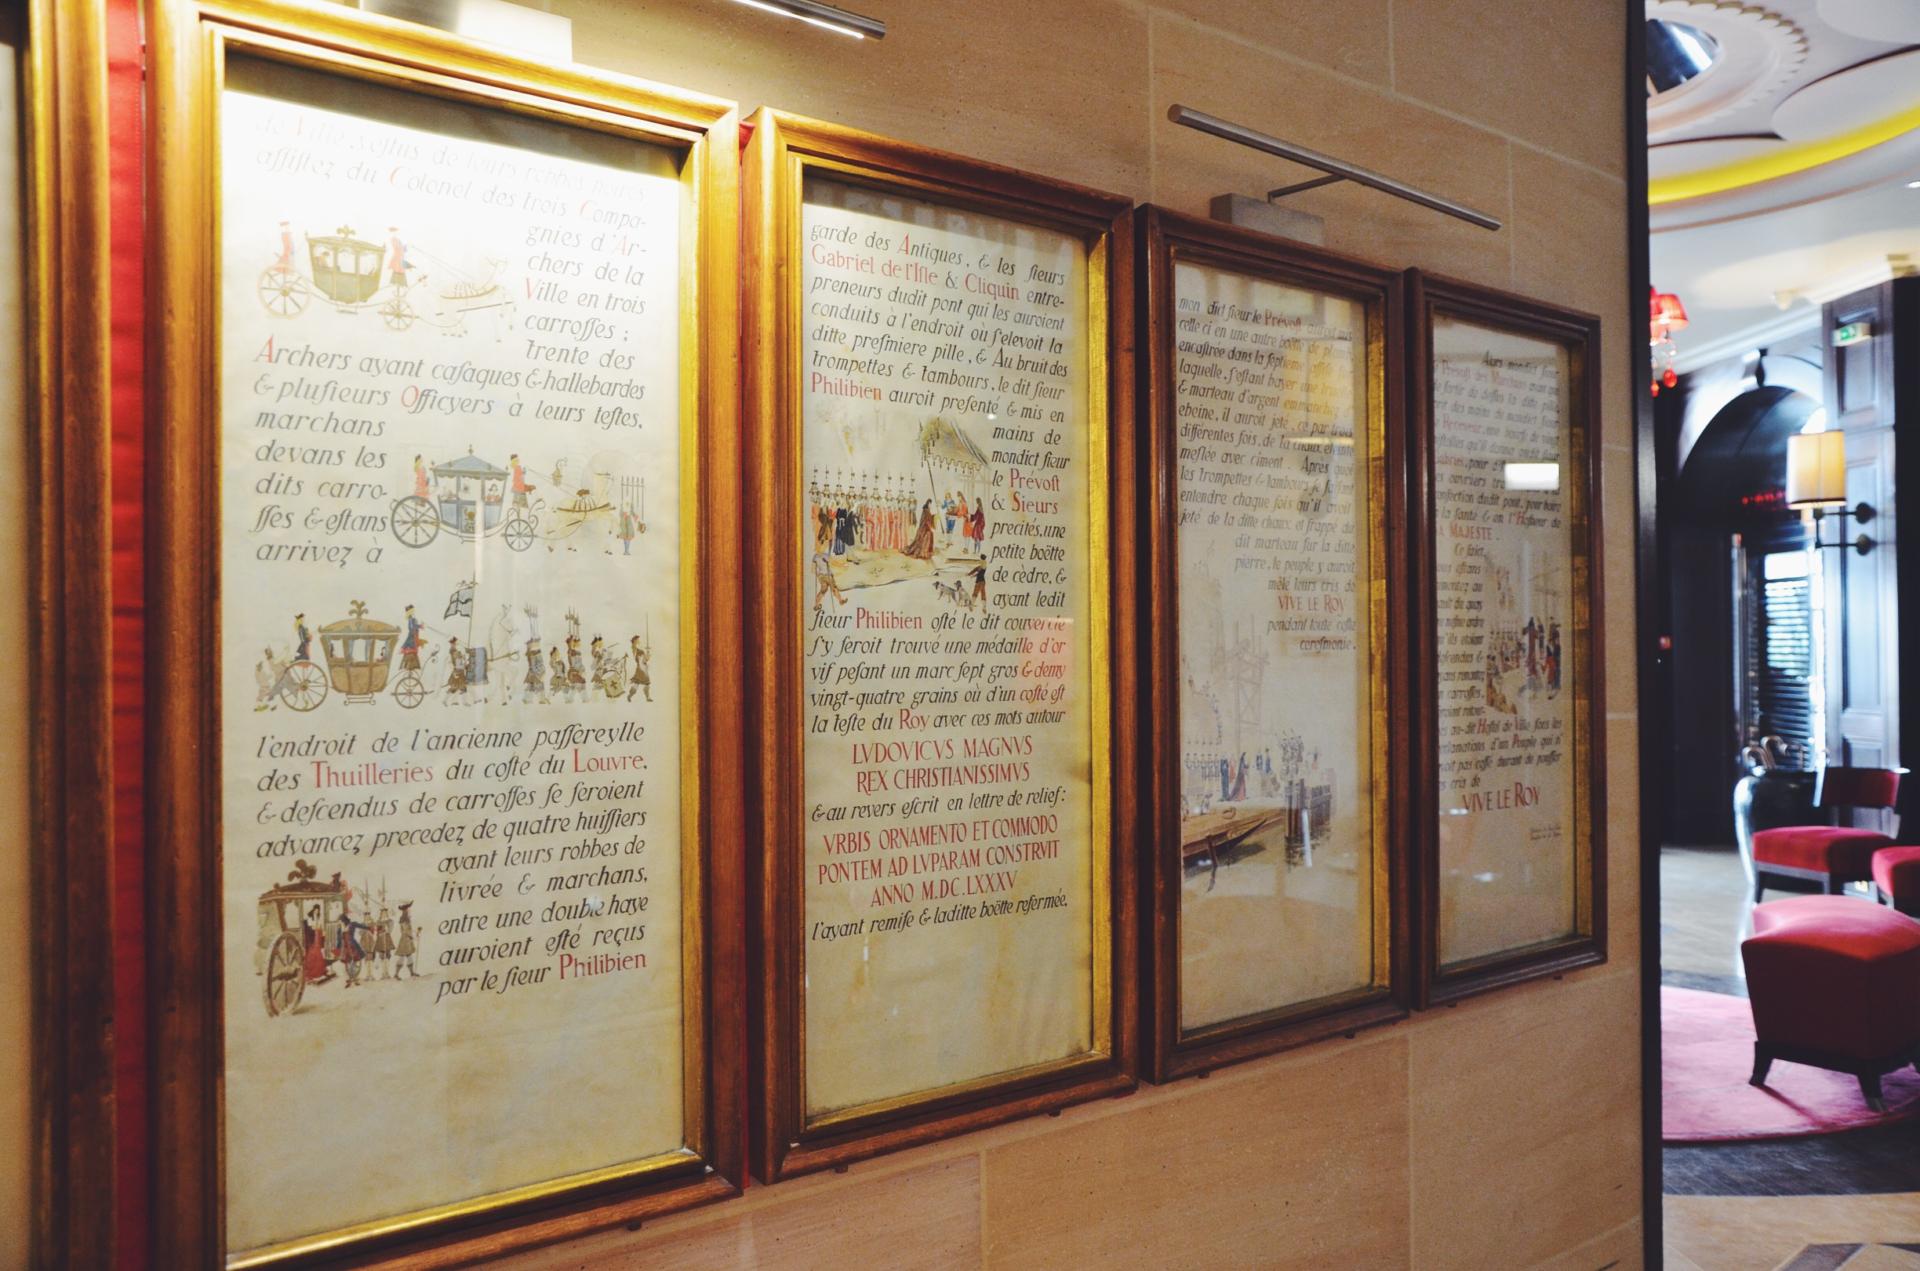 de Ville vestus de leurs robbes noires,
aſſiſtez du Colonel des trois Compa-
gnies d'Ar-
chers de la
Ville en trois
carroſſes ;
trente des
Archers ayant caſaques & hallebardes
& pluſieurs Officyers à leurs teſtes,
marchans
devans les
dits carro-
ſſes & eſtans
arrivez à
l'endroit de l'ancienne paſſereylle
des Thuilleries du coſté du Louvre,
& deſcendus de carroſſes ſe ſeroient
advancez precedez de quatre huiſſiers
ayant leurs robbes de
livrée & marchans,
entre une double haye
auroient eſté reçus
par le ſieur Philibien
garde des Antiques, & les ſieurs
Gabriel de l'Iſle & Cliquin entre-
preneurs dudit pont qui les auroient
conduits à l'endroit où ſ'elevoit la
ditte preſmiere pille, & Au bruit des
trompettes & tambours, le dit ſieur
Philibien auroit preſenté & mis en
mains de
mondict ſieur
le Prévoſt
& Sieurs
precités, une
petite boëtte
de cèdre, &
ayant ledit
ſieur Philibien oſté le dit couvercle
ſ'y ſeroit trouvé une médaille d'or
vif peſant un marc ſept gros & demy
vingt-quatre grains où d'un coſté eſt
la teſte du Roy avec ces mots autour
LVDOVICVS MAGNVS
REX CHRISTIANISSIMVS
& au revers eſcrit en lettre de relief :
VRBIS ORNAMENTO ET COMMODO
PONTEM AD LVPARAM CONSTRVIT
ANNO M.DC.LXXXV
l'ayant remiſe & laditte boëtte refermée,
mon dict ſieur le Prévoſt auroit mis
celle ci en une autre boëtte de plomb
encaſtrée dans la ſeptieme aſſiſe
laquelle, ſ'eſtant
& marteau d'argent emmanchez d'
ebeine, il auroit jeté, ce par trois
différentes fois, de la chaux eteinte
meſlée avec ciment. Apres quoi
les trompettes & tambours ſe
entendre chaque fois qu'il avoit
jeté de la ditte chaux et frappé du
dit marteau ſur la ditte
pierre, le peuple y auroit
mêlé leurs cris de
VIVE LE ROY
pendant toute cette
cereſmonie.
Alors mondict ſieur
Prévoſt des Marchans
de ſortir du deſſus la ditte pille,
des mains de mondict ſieur
ouvriers
dudit pont, pour boire
la ſanté & en l'Honneur de
MAJESTE.
Ce fait,
eſtans
du quay
ordre
eſtoient
deſcendus &
carroſſes,
Hoſtel de Ville ſous les
d'un Peuple qui n'
pas ceſſé durant de pouſſer
cris de
VIVE LE ROY